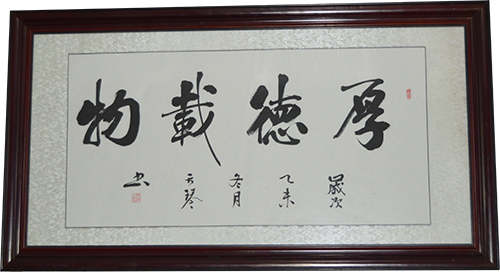 厚德載物
歲次
乙未
冬月
天琴
书